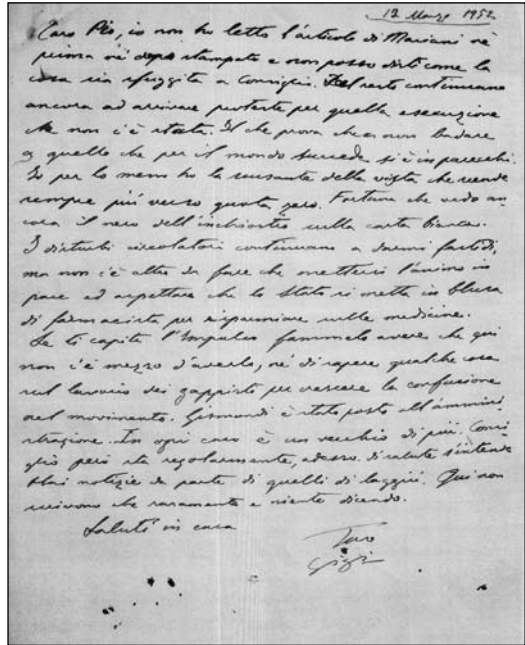 12 Marzo 1952
Caro Pio, io non ho letto l'articolo di Mariani nè
prima nè dopo stampato e non posso dirti come la
cosa sia sfuggita a Consiglio. Del resto continuano
ancora ad arrivare proteste per quella esecuzione
che non c'è stata. Il che prova che a non badare
a quello che per il mondo succede si è in parecchi.
Io per lo meno ho la scusante della vista che scende
sempre più verso quota zero. Fortuna che vedo an
cora il nero dell'inchiostro sulla carta bianca.
I disturbi circolatori continuano a darmi fastidi,
ma non c'è altro da fare che mettersi l'animo in
pace ed aspettare che lo Stato si metta in blusa
di farmacista per risparmiare sulle medicine.
Se ti capita l'Impulso fammelo avere che qui
non c'è mezzo d'averlo, nè di sapere qualche cosa
sul lavoro dei gaappisti per crescere la confusione
nel movimento. Gismondi è stato posto all'ammini
strazione. In ogni caso è un vecchio di più. Consi
glio però sta regolarmente, adesso. di salute s'intende
Hai notizie da parte di quelli di laggiù. Qui non
scrivono che raramente e niente dicendo.
Saluti in casa
Tuo
Gigi